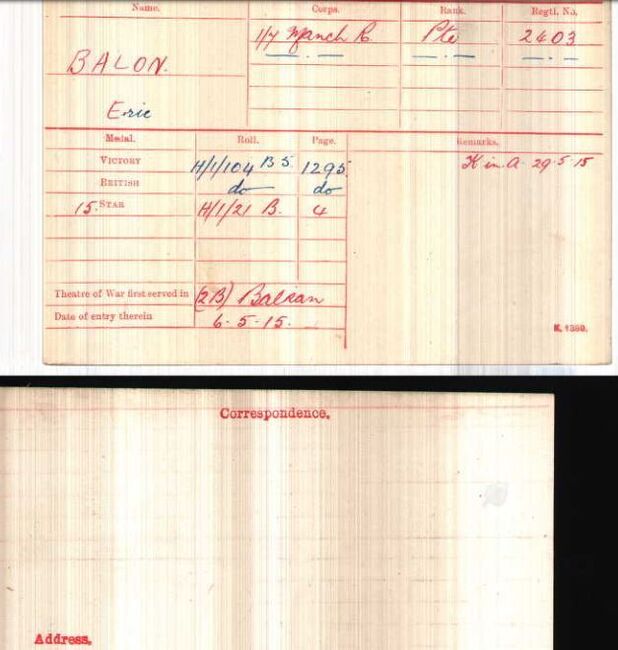 Name. Corps. Rank. Regtl. No.
1/7 Manch R. Pte 2403
BALON.
Eric
Medal. Roll. Page. Remarks.
VICTORY H/1/104 B 5 1295. K in A. 29.5.15
BRITISH do do
15. STAR H/1/21 B. 4
Theatre of War first served in (2B) Balkan
Date of entry therein 6.5.15.
K. 1380.
Correspondence.
Address.